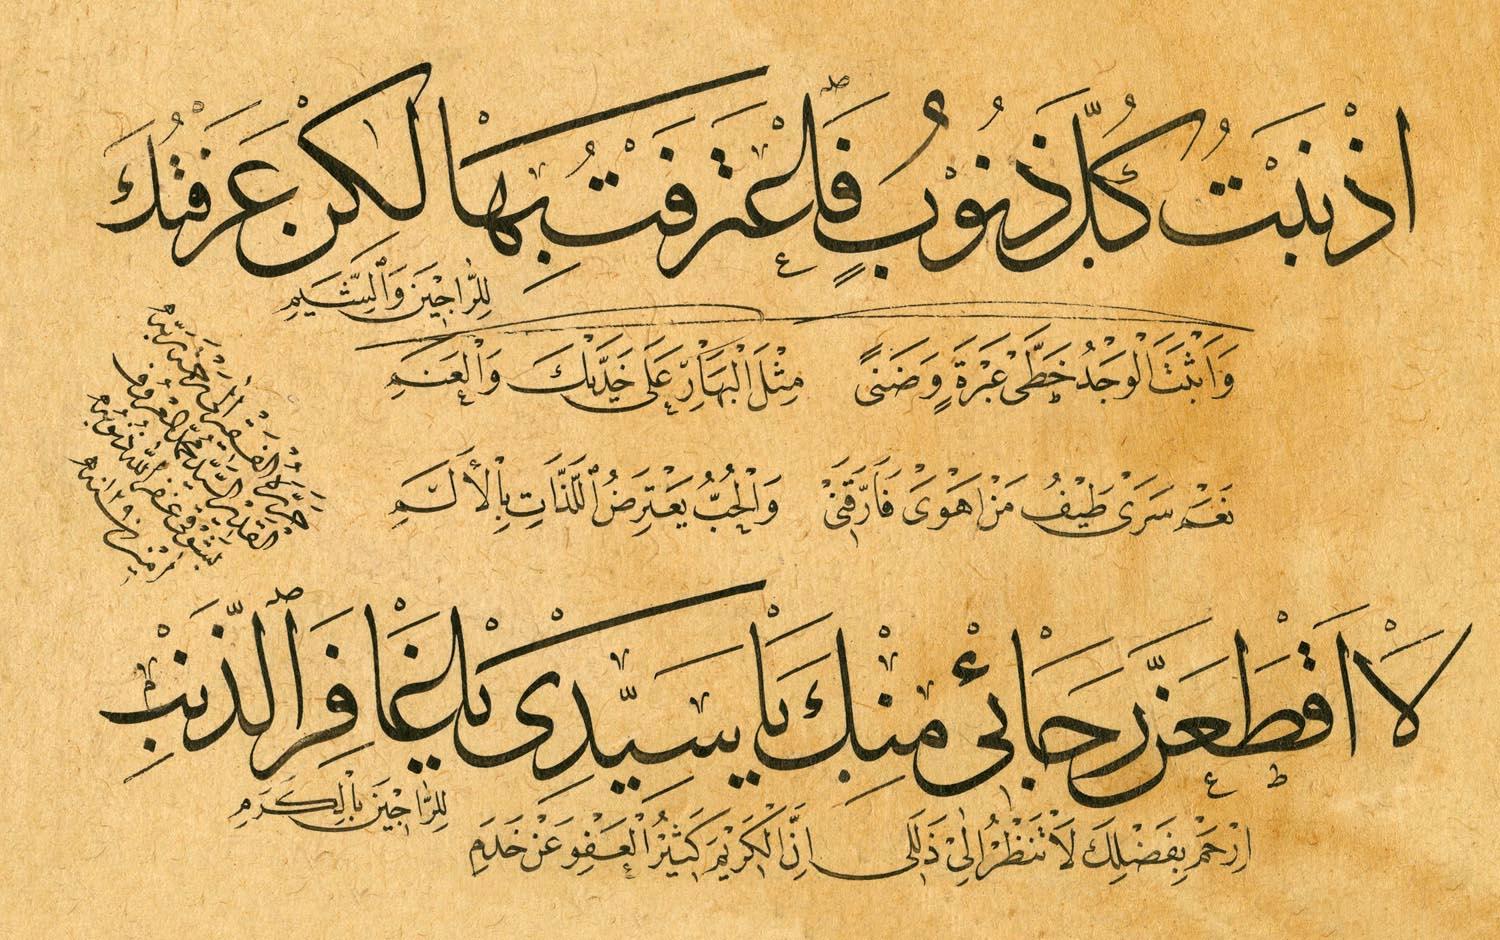 اذْنَبْتُ كُلَّ ذُنُوْبٍ فَاعْتَرَفْتُ بِهَا لٰكِنْ عَرَفْتُكَ
لِلرَّاجِيْنَ وَالشِّيَمِ
وَاَثْبَتَ الْوَجْدُ خَطَّىْ عَبْرَةٍ وَضَنًى مِثْلَ الْبَهَارِ عَلٰى خَدَّيْكَ وَالْعَنَمِ
نَعَمْ سَرٰى طَيْفُ مَنْ اَهْوٰى فَاَرَّقَنِىْ وَالْحُبُّ يَعْتَرِضُ اللَّذَّاتِ بِالْاَلَمِ
لَا اَقْطَعَنَّ رَجَائِىْ مِنْكَ يَا سَيِّدِىْ يَا غَافِرَ الذَّنْبِ
لِلرَّاجِيْنَ بِالْكَرَمِ
اِرْحَمْ بِفَضْلِكَ لَا تَنْظُرْ اِلٰى ذَلَلِى اِنَّ الْكَرِيْمَ كَثِيْرُ الْعَفْوِ عَنْ خَدَمِ